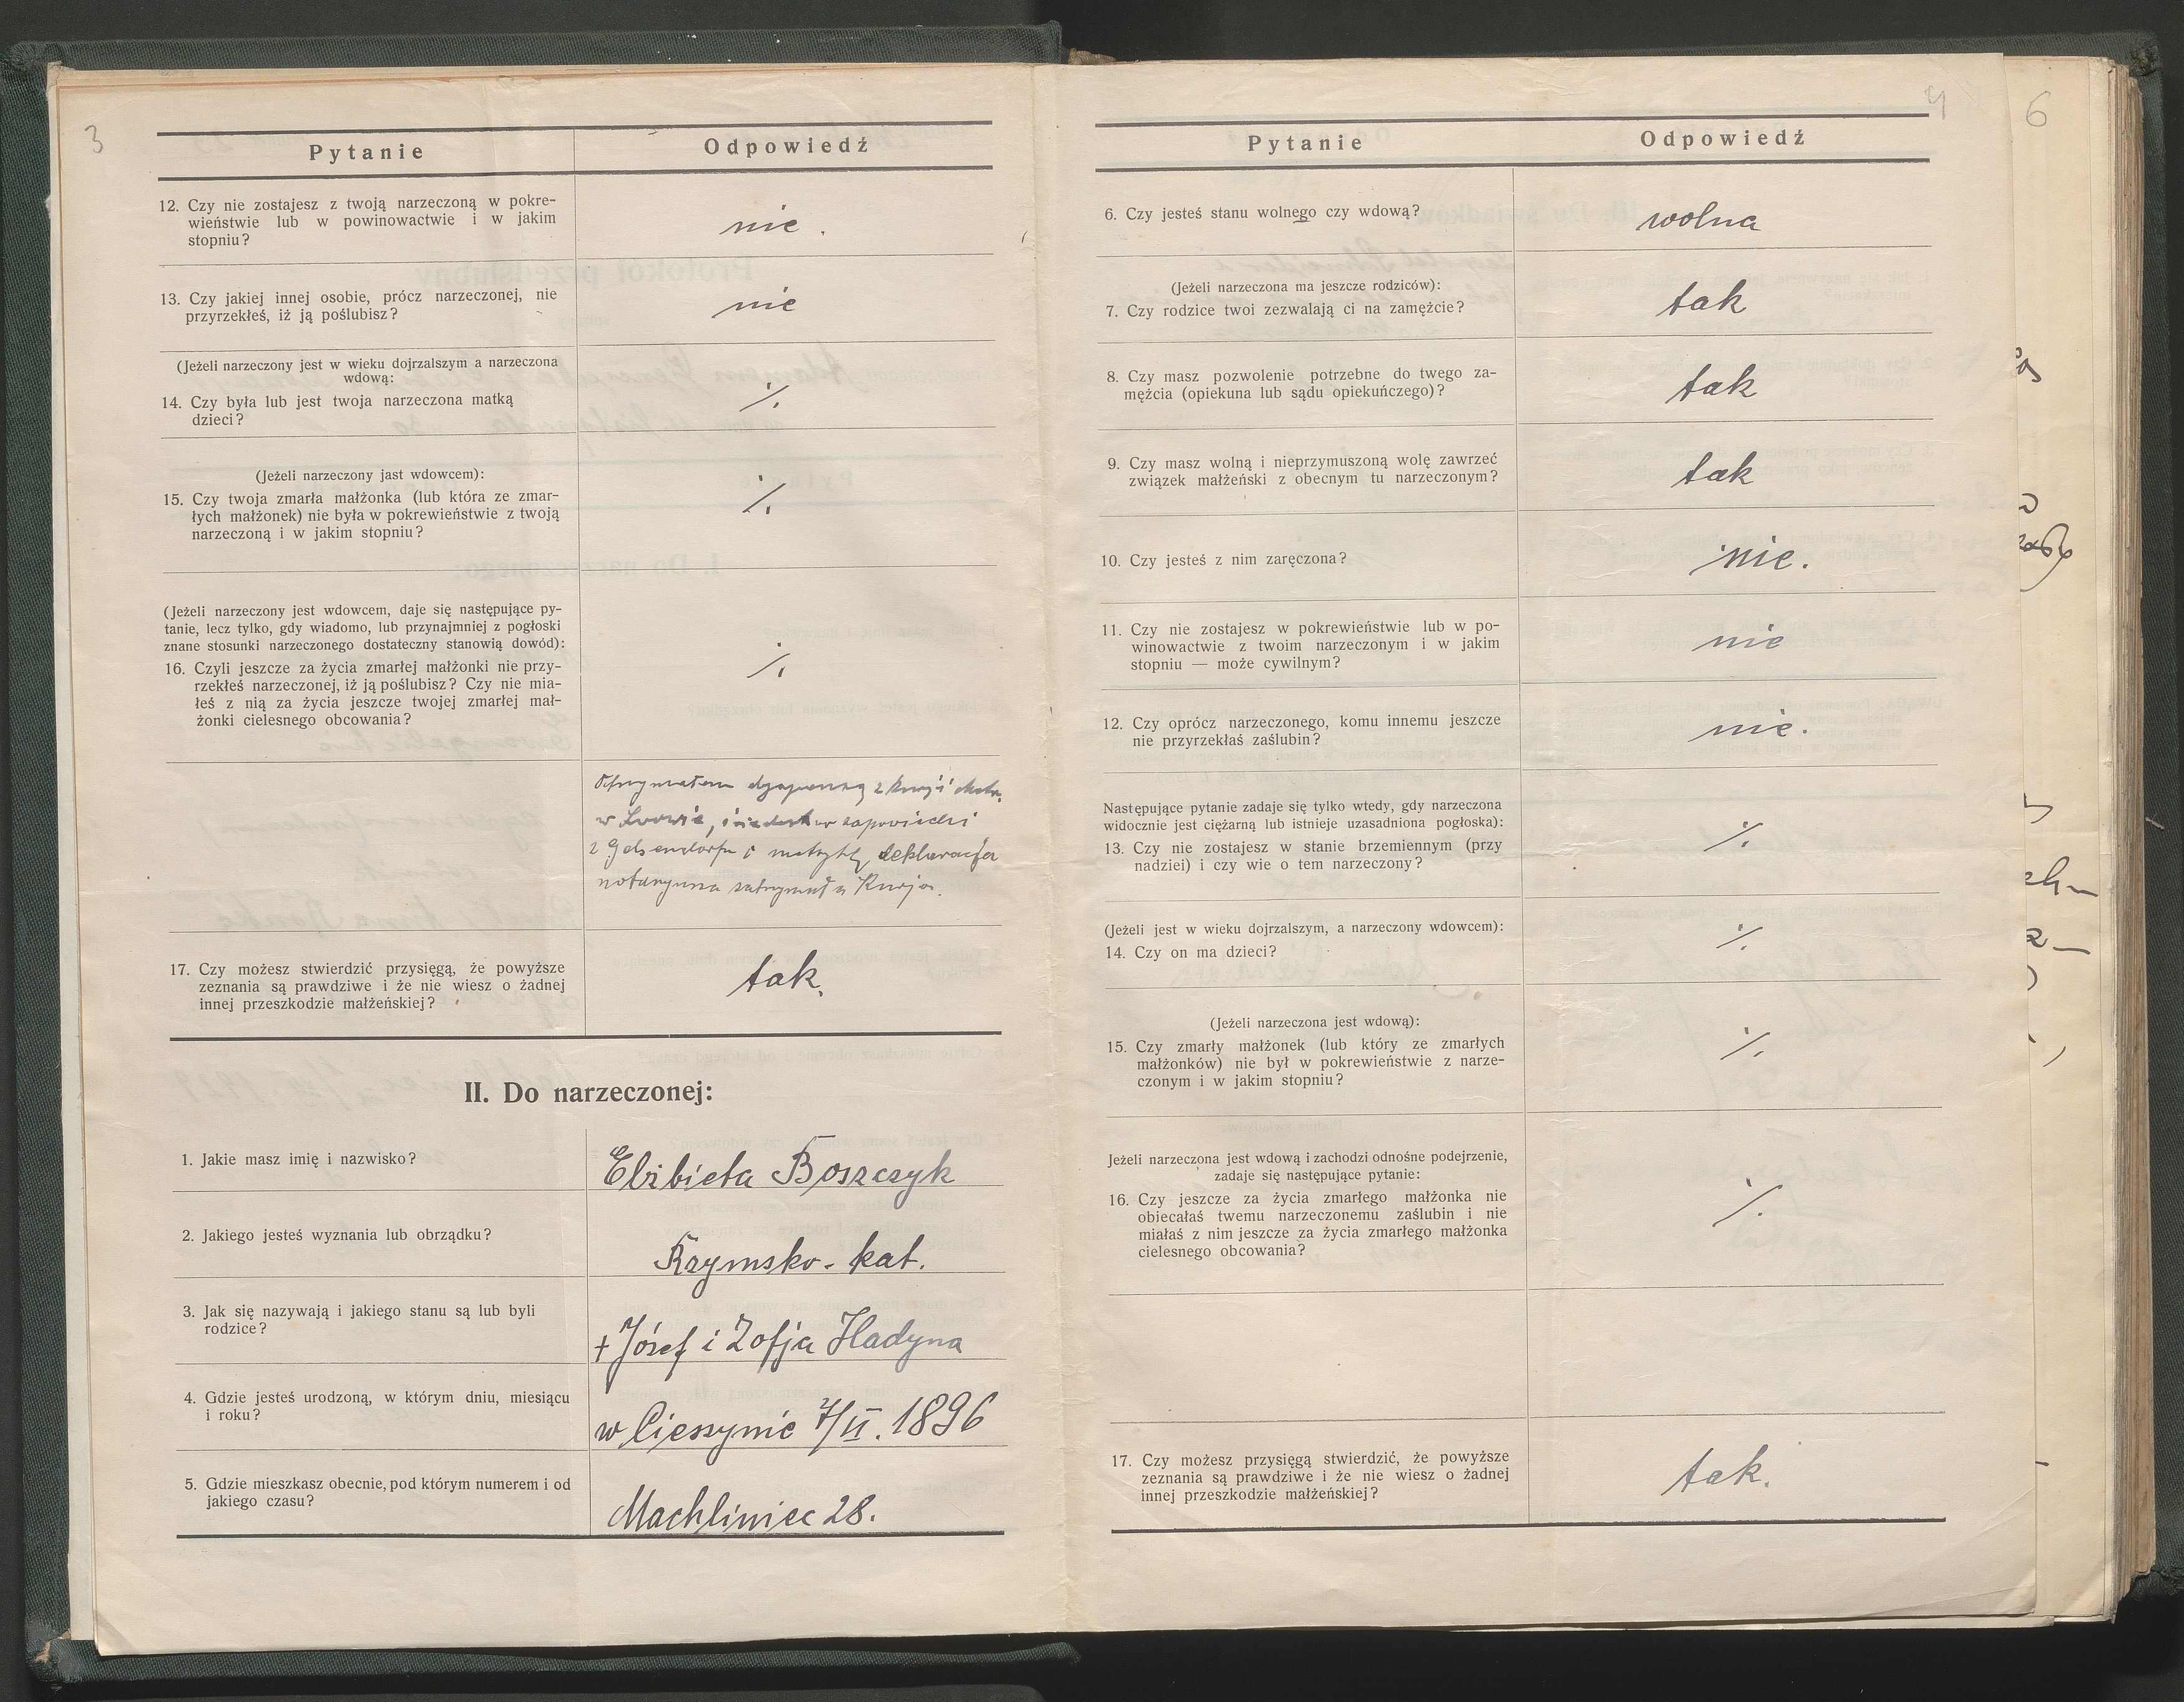 3
Pytanie
Odpowiedź
12. Czy nie zostajesz z twoją narzeczoną w pokre-
wieństwie lub w powinowactwie i w jakim
stopniu?
nie.
13. Czy jakiej innej osobie, prócz narzeczonej, nie
przyrzekłeś, iż ją poślubisz?
nie
(Jeżeli narzeczony jest w wieku dojrzalszym a narzeczona
wdową:
14. Czy była lub jest twoja narzeczona matką
dzieci?
·/.
(Jeżeli narzeczony jast wdowcem):
15. Czy twoja zmarła małżonka (lub która ze zmar-
łych małżonek) nie była w pokrewieństwie z twoją
narzeczoną i w jakim stopniu?
·/.
(Jeżeli narzeczony jest wdowcem, daje się następujące py-
tanie, lecz tylko, gdy wiadomo, lub przynajmniej z pogłoski
znane stosunki narzeczonego dostateczny stanowią dowód):
16. Czyli jeszcze za życia zmarłej małżonki nie przy-
rzekłeś narzeczonej, iż ją poślubisz? Czy nie mia-
łeś z nią za życia jeszcze twojej zmarłej mał-
żonki cielesnego obcowania?
·/.
Otrzymałem dyspensę z kurji
w Lwowie, zapowiedzi
z Gelsendorfu i metrykę, deklaracja
notaryjna zatrzymała Kurja.
17. Czy możesz stwierdzić przysięgą, że powyższe
zeznania są prawdziwe i że nie wiesz o żadnej
innej przeszkodzie małżeńskiej?
tak.
II. Do narzeczonej:
1. Jakie masz imię i nazwisko?
Elżbieta Boszczyk
2. Jakiego jesteś wyznania lub obrządku?
Rzymsko-kat.
3. Jak się nazywają i jakiego stanu są lub byli
rodzice?
+ Józef i Zofja Hadyna
4. Gdzie jesteś urodzoną, w którym dniu, miesiącu
i roku?
w Cieszynie 7/II. 1896
5. Gdzie mieszkasz obecnie, pod którym numerem i od
jakiego czasu?
Machliniec 28.
4
6
Pytanie
Odpowiedź
6. Czy jesteś stanu wolnego czy wdową?
wolna
(Jeżeli narzeczona ma jeszcze rodziców):
7. Czy rodzice twoi zezwalają ci na zamęźcie?
tak
8. Czy masz pozwolenie potrzebne do twego za-
męźcia (opiekuna lub sądu opiekuńczego)?
tak
9. Czy masz wolną i nieprzymuszoną wolę zawrzeć
związek małżeński z obecnym tu narzeczonym?
tak
10. Czy jesteś z nim zaręczona?
nie.
11. Czy nie zostajesz w pokrewieństwie lub w po-
winowactwie z twoim narzeczonym i w jakim
stopniu — może cywilnym?
nie
12. Czy oprócz narzeczonego, komu innemu jeszcze
nie przyrzekłaś zaślubin?
nie.
Następujące pytanie zadaje się tylko wtedy, gdy narzeczona
widocznie jest ciężarną lub istnieje uzasadniona pogłoska):
13. Czy nie zostajesz w stanie brzemiennym (przy
nadziei) i czy wie o tem narzeczony?
·/.
(Jeżeli jest w wieku dojrzalszym, a narzeczony wdowcem):
14. Czy on ma dzieci?
·/.
(Jeżeli narzeczona jest wdową):
15. Czy zmarły małżonek (lub który ze zmarłych
małżonków) nie był w pokrewieństwie z narze-
czonym i w jakim stopniu?
·/.
Jeżeli narzeczona jest wdową i zachodzi odnośne podejrzenie,
zadaje się następujące pytanie:
16. Czy jeszcze za życia zmarłego małżonka nie
obiecałaś twemu narzeczonemu zaślubin i nie
miałaś z nim jeszcze za życia zmarłego małżonka
cielesnego obcowania?
·/.
17. Czy możesz przysięgą stwierdzić, że powyższe
zeznania są prawdziwe i że nie wiesz o żadnej
innej przeszkodzie małżeńskiej?
tak.